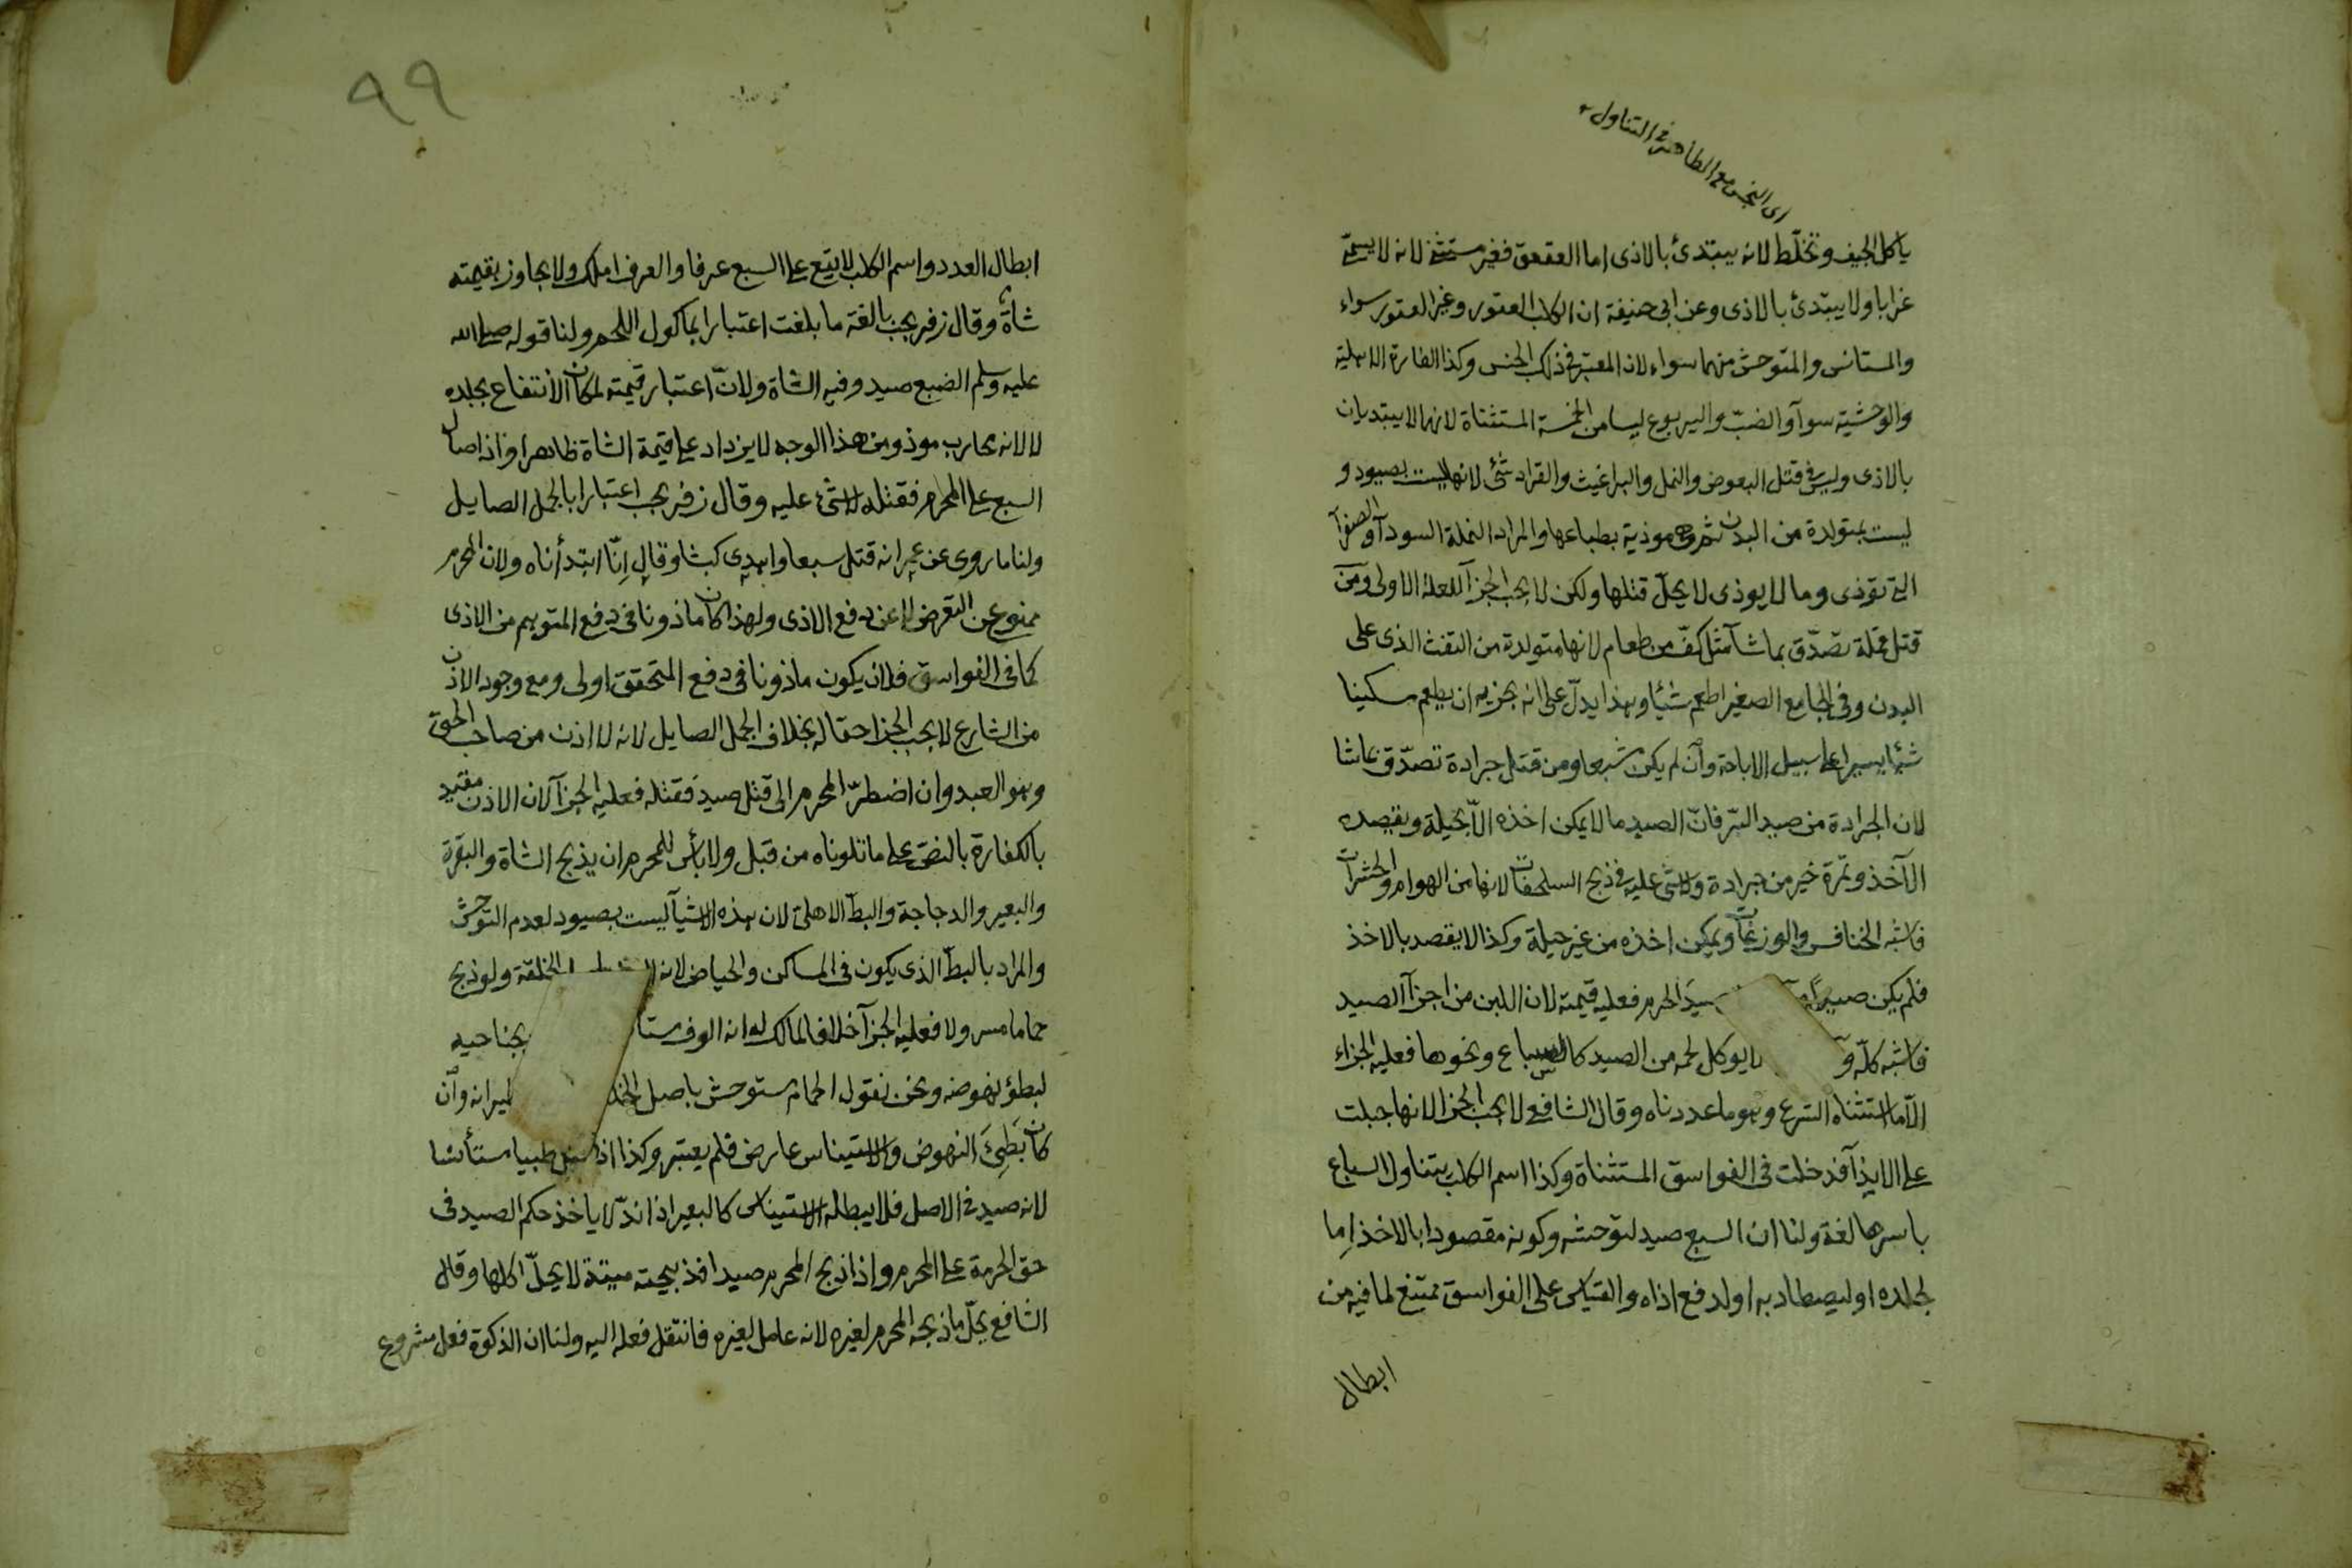 اى النجس مع الطاهر فى التناول
ياكل الجيف وتخلّط لانه يبتدئ بالاذى اما العقعق فغير مستثنى لانه لا يسمّى
غرابا ولا يبتدئ بالاذى وعن ابى حنيفة ان الكلب العقور وغير العقور سواء
والمستانس والمتوحش منهما سواء لان المعتبر فى ذلك الجنس وكذا الفارة الاهلية
والوحشية سوآ والضبّ واليربوع ليسا من الخمسة المستثناة لانهما لا يبتديان
بالاذى وليس فى قتل البعوض والنمل والبراغيث والقراد شئ لانها ليست بصيود و
ليست بمتولدة من البدن ثم هى موذية بطباعها والمراد النملة السودآ والصفرآ
التى توذى وما لا يوذى لا يحلّ قتلها ولكن لا يجب الجزآ للعلة الاولى ومن
قتل قملة تصدّق بما شآ مثل كفّ من طعام لانها متولدة من التفث الذى على
البدن وفى الجامع الصغير اطعم شئيا وهذا يدلّ على انه يجزيه ان يطعم مسكينا
شئيا يسيرا على سبيل الاباحة وان لم يكن مشبعا ومن قتل جرادة تصدّق بما شا
لان الجرادة من صيد البرّ فانّ الصيد ما لا يمكن اخذه الاّ بحيلة ويقصده
الآخذ وتمرة خير من جرادة ولا شئ عليه فى ذبح السلحفات لانها من الهوام والحشرات
فاشبه الخنافس والوزغات ويمكن اخذه من غير حيلة وكذا لا يقصد بالاخذ
فلم يكن صيدًا صيدَ الحرم فعليه قيمته لان اللبن من اجزآ الصيد
فاشبه كلّه و لا يوكل لحمه من الصيد كالسباع ونحوها فعليه الجزاء
الاّ ما استثناه الشرع وهو ما عددناه وقال الشافعى لا يجب الجزا لانها جبلت
على الايذآ فدخلت فى الفواسق المستثناة وكذا اسم الكلب يتناول السباع
باسرها لغة ولنا ان السبع صيد لتوحشه وكونه مقصودا بالاخذ اِما
لجلده او ليصطاد به او لدفع اذاه والقياس على الفواسق ممتنع لما فيه من
ابطال
٩٩
ابطال العدد واسم الكلب لا يقع على السبع عرفا والعرف املك ولا يجاوز بقيمته
شاة وقال زفر يجب بالغة ما بلغت اعتبارا بماكول اللحم ولنا قوله صلى الله
عليه وسلم الضبع صيد وفيه الشاة ولانّ اعتبار قيمته لمكان الانتفاع بجلده
لا لانه محارب موذ ومن هذا الوجه لا يزداد على قيمة الشاة ظاهرا واذا صال
السبع على المحرم فقتله لا شئ عليه وقال زفر يجب اعتبارا بالجمل الصايل
ولنا ما روى عن عمر انه قتل سبعا واهدى كبشا وقال اِنّا ابتدأناه ولان المحرم
ممنوع عن التعرض لا عن دفع الاذى ولهذا كان ماذونا فى دفع المتوهم من الاذى
كما فى الفواسق فلان يكون ماذونا فى دفع المتحقق اولى ومع وجود الاذن
من الشارع لا يجب الجزا حقا له بخلاف الجمل الصايل لانه لا اذن من صاحب الحق
وهو العبد وان اضطرّ المحرم الى قتل صيد فقتله فعليه الجزآ لان الاذن مقيد
بالكفارة بالنصّ على ما تلوناه من قبل ولا بأس للمحرم ان يذبح الشاة والبقرة
والبعير والدجاجة والبطّ الاهلى لان هذه الاشيآ ليست بصيود لعدم التوحش
والمراد بالبطّ الذى يكون فى المساكن والحياض لانه الخلقة ولو ذبح
حماما مسرولا فعليه الجزآ خلافا لمالك له انه الوف مستا بجناحيه
لبطؤ نهوضه ونحن نقول الحمام متوحش باصل الخلـ طيرانه وان
كان بَطِئَ النهوض والاستيناس عارض فلم يعتبر وكذا اذا قتل ظبيا مستأنسا
لانه صيد فى الاصل فلا يبطله الاستيناس كالبعير اذا ندّ لا ياخذ حكم الصيد فى
حق الحرمة على المحرم واذا ذبح المحرم صيدا فذبيحته ميتة لا يحلّ اكلها وقال
الشافعى يحلّ ما ذبحه المحرم لغيره لانه عامل لغيره فانتقل فعله اليه ولنا ان الذكوة فعل مشروع